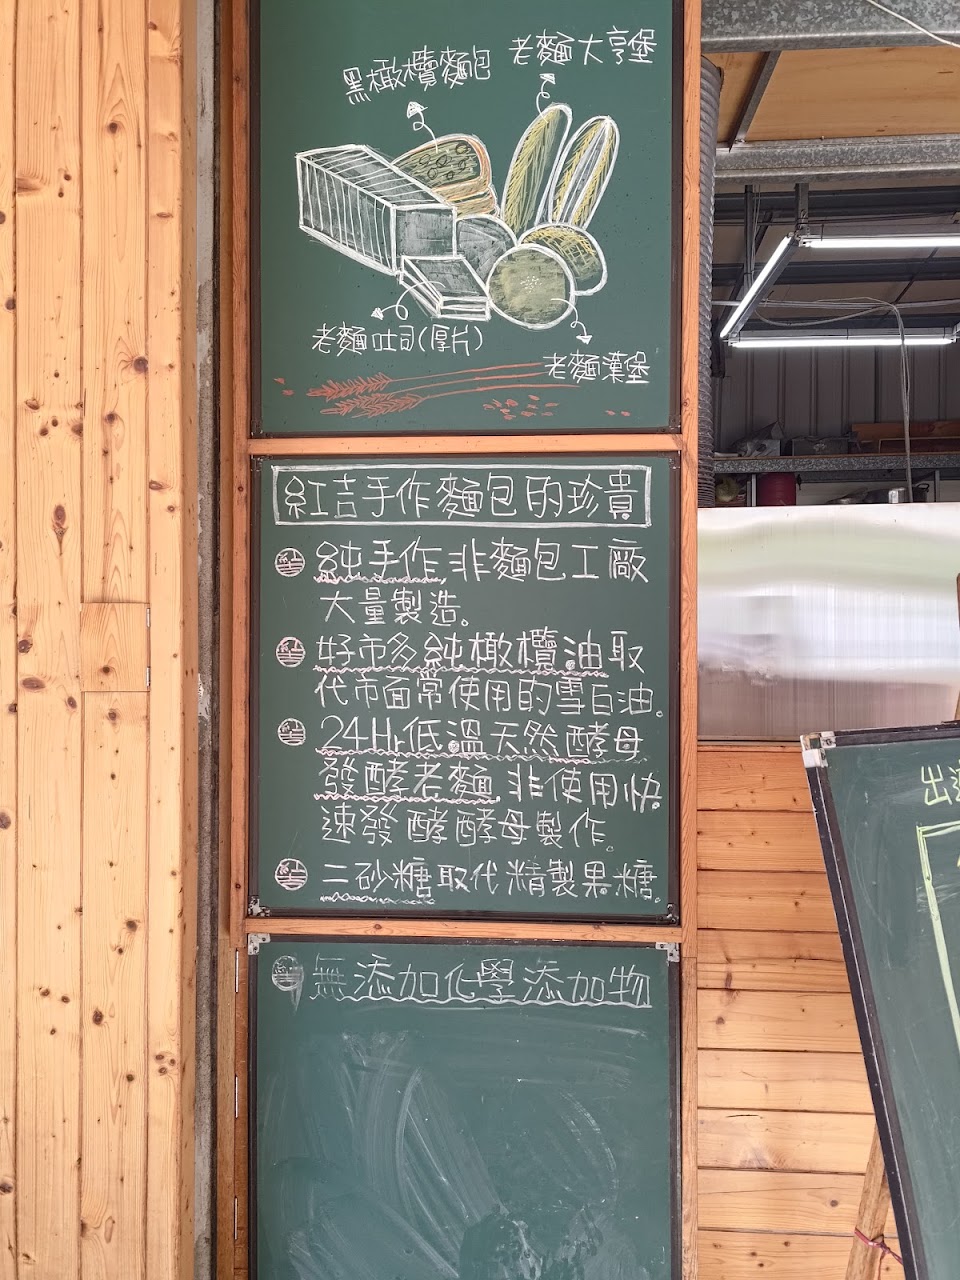 黑橄欖麵包
老麵大亨堡
老麵吐司(厚片)
老麵漢堡
紅吉手作麵包的珍貴
純手作,非麵包工廠
大量製造。
好市多純橄欖油取
代市面常使用的雪白油。
24Hr低溫天然酵母
發酵老麵,非使用快
速發酵酵母製作。
二砂糖取代精製果糖。
無添加化學添加物